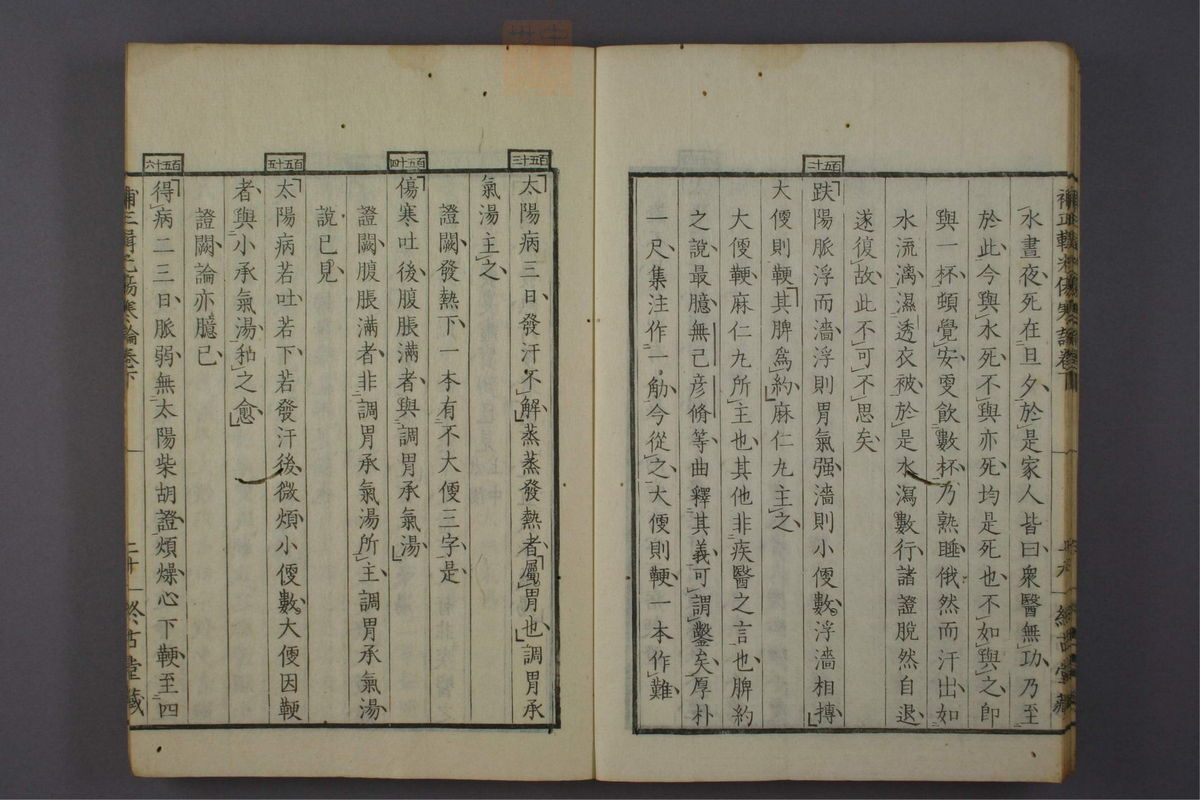 水晝夜死在旦夕於是家人皆曰衆醫無功乃至
於此今與水死不與亦死均是死也不如與之即
與一杯頓覺安更飲數杯乃熟睡俄然而汗出如
水流漓濕透衣被於是水瀉數行諸證脫然自退
遂復故此不可不思矣
百五十二
趺陽脈浮而濇浮則胃氣强濇則小便數浮濇相摶
大便則鞕其脾爲約麻仁丸主之
大便鞕麻仁丸所主也其他非疾醫之言也脾約
之說最臆無己彦脩等曲釋其義可謂鑿矣厚朴
一尺集注作一觔今從之大便則鞕一本作難
百五十三
太陽病三日發汗不解蒸蒸發熱者屬胃也調胃承
氣湯主之
證闕發熱下一本有不大便三字是
百五十四
傷寒吐後腹脹滿者與調胃承氣湯
證闕腹脹滿者非調胃承氣湯所主調胃承氣湯
說已見
百五十五
太陽病若吐若下若發汗後微煩小便數大便因鞕
者與小承氣湯和之愈
證闕論亦臆已
百五十六
得病二三日脈弱無太陽柴胡證煩燥心下鞕至四
傷寒論卷下
二十一
終古堂藏